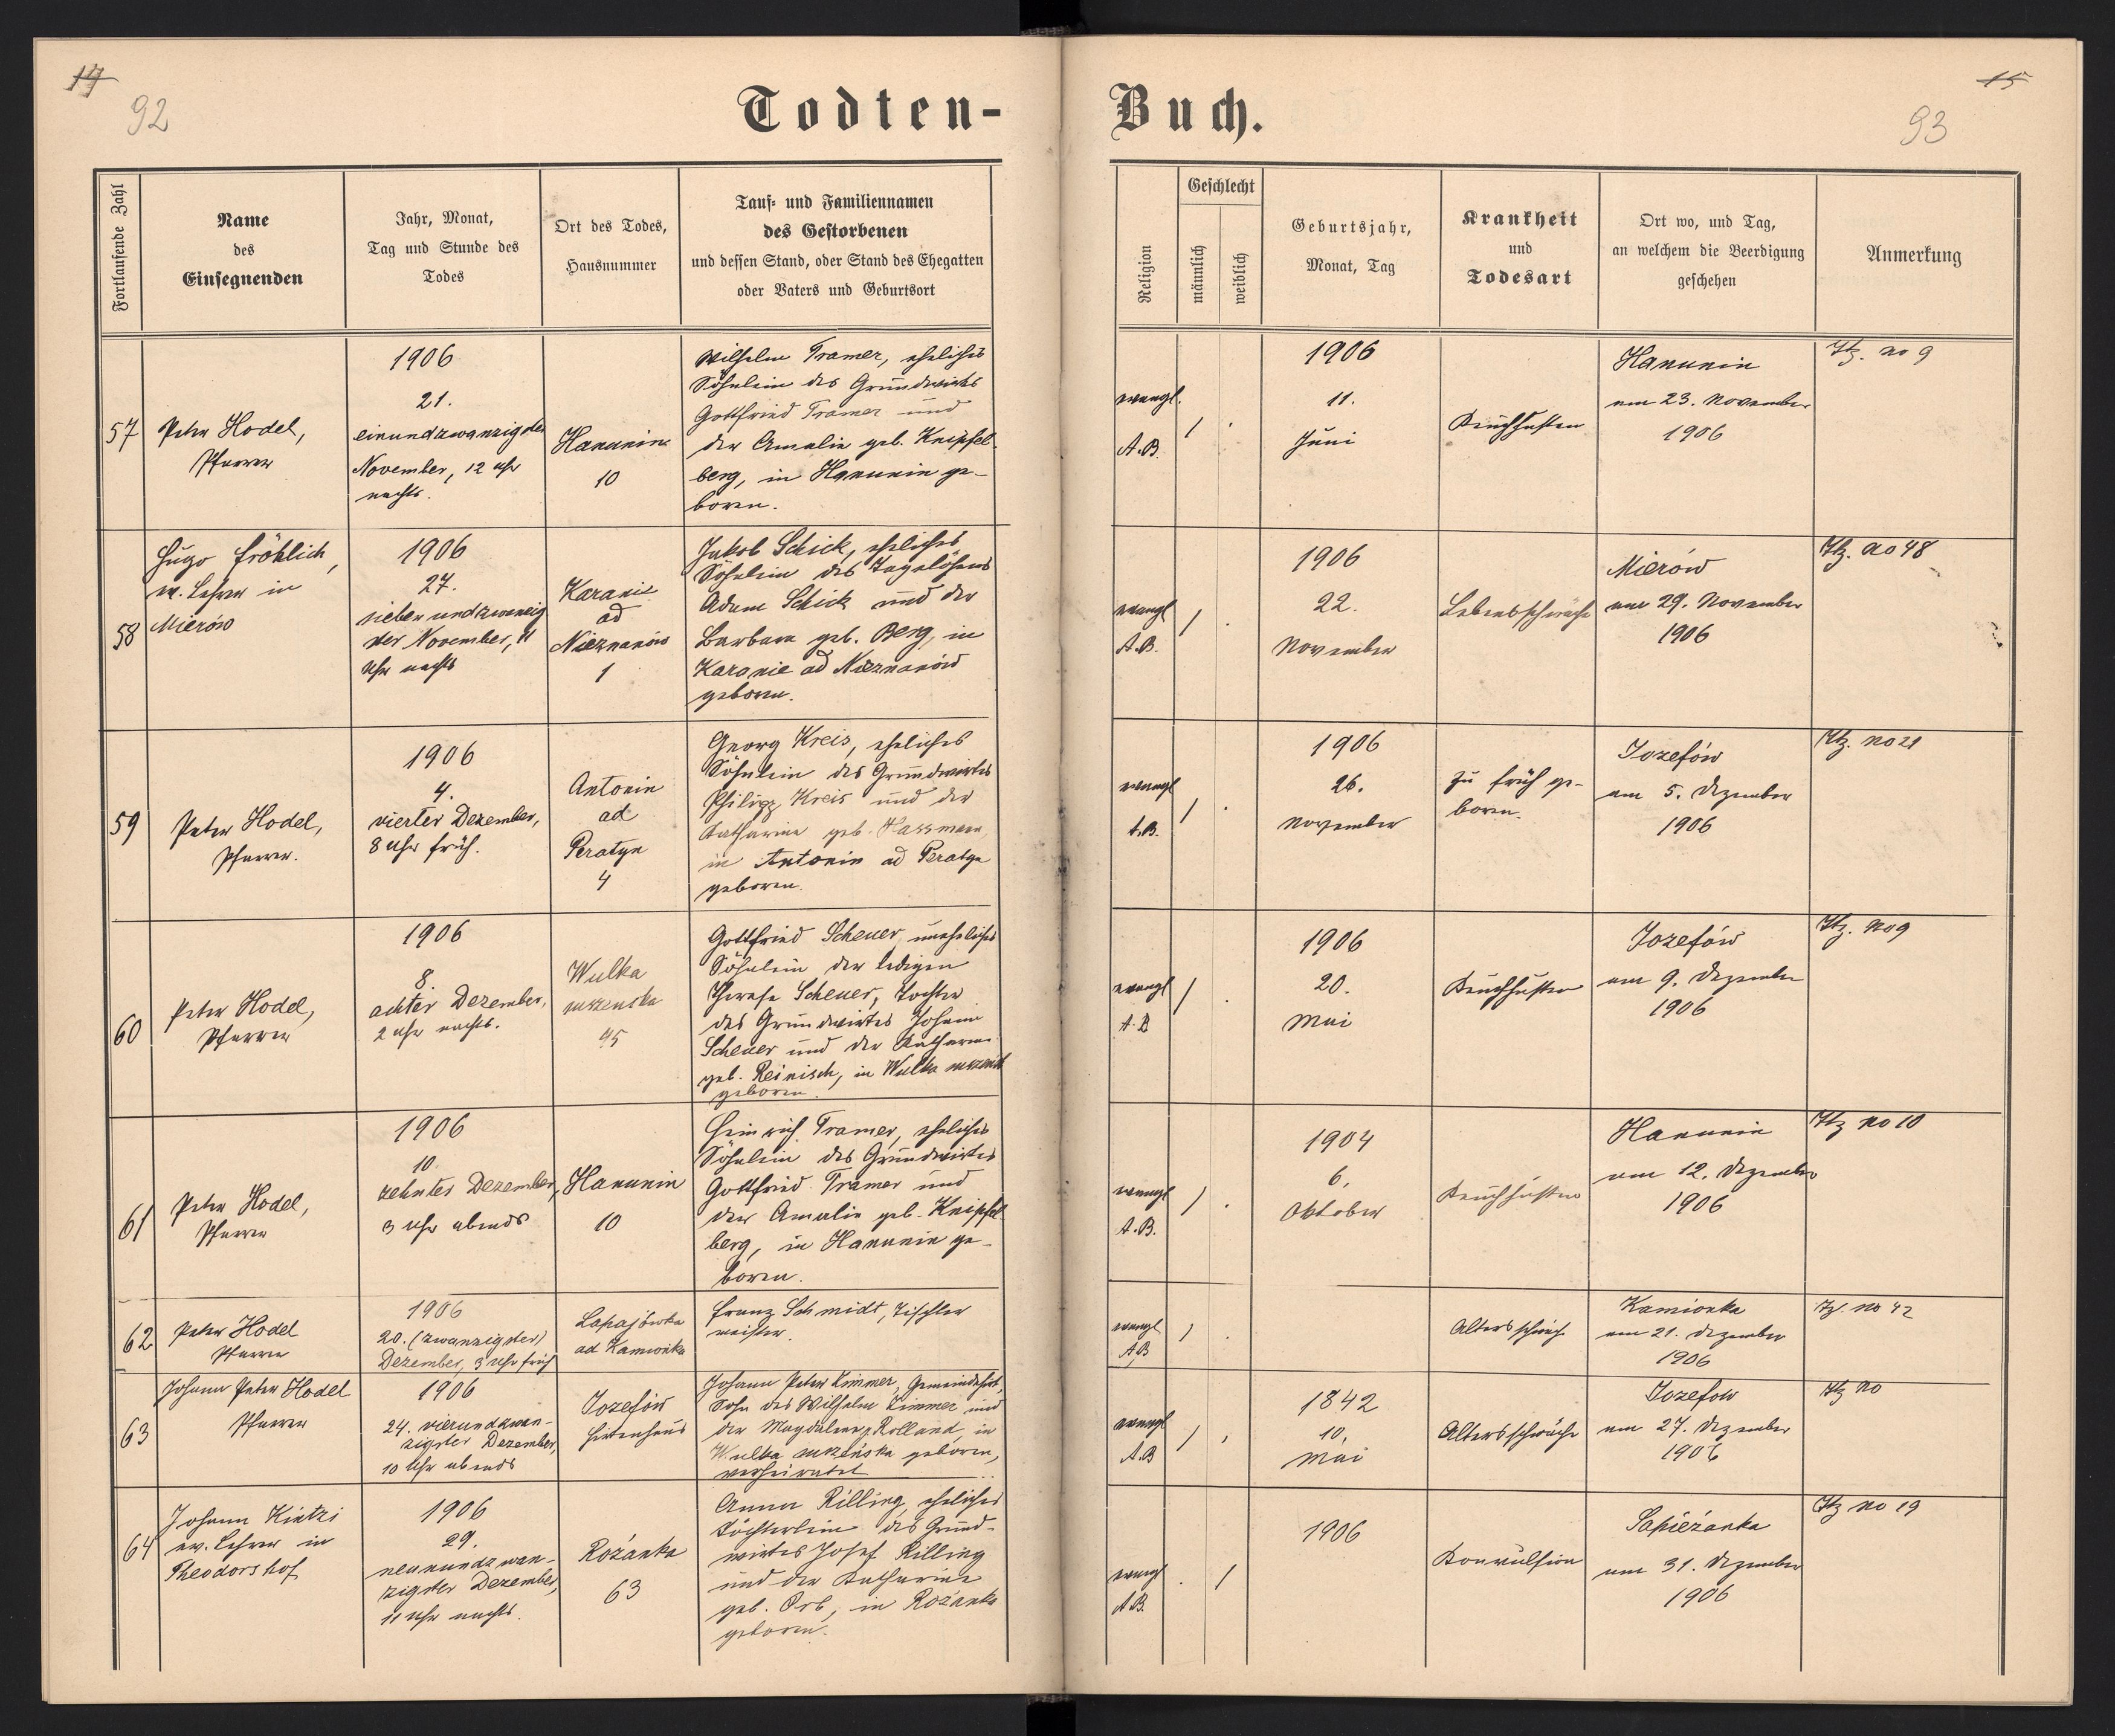 14
92
Todten-
Fortlaufende Zahl
Name
des
Einsegnenden
Jahr, Monat,
Tag und Stunde des
Todes
Ort des Todes,
Hausnummer
Tauf- und Familiennamen
des Gestorbenen
und dessen Stand, oder Stand des Ehegatten
oder Vaters und Geburtsort
57
Peter Hodel,
Pfarrer
1906
21.
einundzwanzigster
November, 12 Uhr
nachts.
Hanunin
10
Wilhelm Tramer, eheliches
Söhnlein des Grundwirtes
Gottfried Tramer und
der Amalie geb. Knipfel-
berg, in Hanunin ge-
boren.
58
Hugo Fröhlich,
ev. Lehrer in
Mierów
1906
27.
siebenundzwanzig
ster November, 11
Uhr nachts
Karanie
ad
Nieznanów
1
Jakob Schick, eheliches
Söhnlein des Tagelöhners
Adam Schick und der
Barbara geb. Berg, in
Karanie ad Nieznanów
geboren.
59
Peter Hodel,
Pfarrer.
1906
4.
vierter Dezember,
8 Uhr früh.
Antonin
ad
Peratyn
4
Georg Kreis, eheliches
Söhnlein des Grundwirtes
Philipp Kreis und der
Katharina geb. Hassmann,
in Antonin ad Peratyn
geboren.
60
Peter Hodel,
Pfarrer
1906
8.
achter Dezember,
2 Uhr nachts.
Wulka
suszenska
45
Gottfried Scheuer, uneheliches
Söhnlein der ledigen
Therese Scheuer, Tochter
des Grundwirtes Johann
Scheuer und der Katharina
geb. Reinisch, in Wulka
geboren.
61
Peter Hodel,
Pfarrer
1906
10.
zehnter Dezember,
3 Uhr abends
Hanunin
10
Heinrich Tramer, eheliches
Söhnlein des Grundwirtes
Gottfried Tramer und
der Amalie geb. Knipfel
berg, in Hanunin ge-
boren.
62
Peter Hodel
Pfarrer
1906
20. (zwanzigster)
Dezember, 3 Uhr früh
Lapajówka
ad Kamionka
Franz Schmidt, Tischler
meister.
63
Johann Peter Hodel
Pfarrer
1906
24. vierundzwan-
zigster Dezember,
10 Uhr abends
Jozefów
Hirtenhaus
Johann Peter Zimmer, Gemeindehirt,
Sohn des Wilhelm Zimmer und
der Magdalena Rolland, in
Wulka suszenska geboren,
verheiratet
64
Johann Kintzi
ev. Lehrer in
Theodorshof
1906
29.
neunundzwan-
zigster Dezember,
11 Uhr nachts.
Rozanka
63
Anna Rilling, eheliches
Töchterlein des Grund-
wirtes Josef Rilling
und der Katharina
geb. Orb, in Rozanka
geboren.
15
93
Buch.
Religion
Geschlecht
männlich
weiblich
Geburtsjahr,
Monat, Tag
Krankheit
und
Todesart
Ort wo, und Tag,
an welchem die Beerdigung
geschehen
Anmerkung
evangl.
A.B.
1
1906
11.
Juni
Keuchhusten
Hanunin
am 23. November
1906
Htz. no 9
evangl
A.B.
1
1906
22.
November
Lebensschwäche
Mierów
am 29. November
1906
Htz. no 48
evangl
A.B.
1
1906
26.
November
zu früh ge-
boren.
Jozefów
am 5. Dezember
1906
Htz. no 21
evangl
A.B
1
1906
20.
Mai
Keuchhusten
Jozefów
am 9. Dezember
1906
Htz. no 9
evangl
A.B.
1
1904
6.
Oktober
Keuchhusten
Hanunin
am 12. Dezember
1906
Htz no 10
evangl
A.B
1
Altersschwäche
Kamionka
am 21. Dezember
1906
Htz. no 42
evangl
A.B
1
1842
10.
Mai
Altersschwäche
Jozefow
am 27. Dezember
1906
Htz no
evangl
A.B.
1
1906
Konvulsion
Sapieżanka
am 31. Dezember
1906
Htz no 19